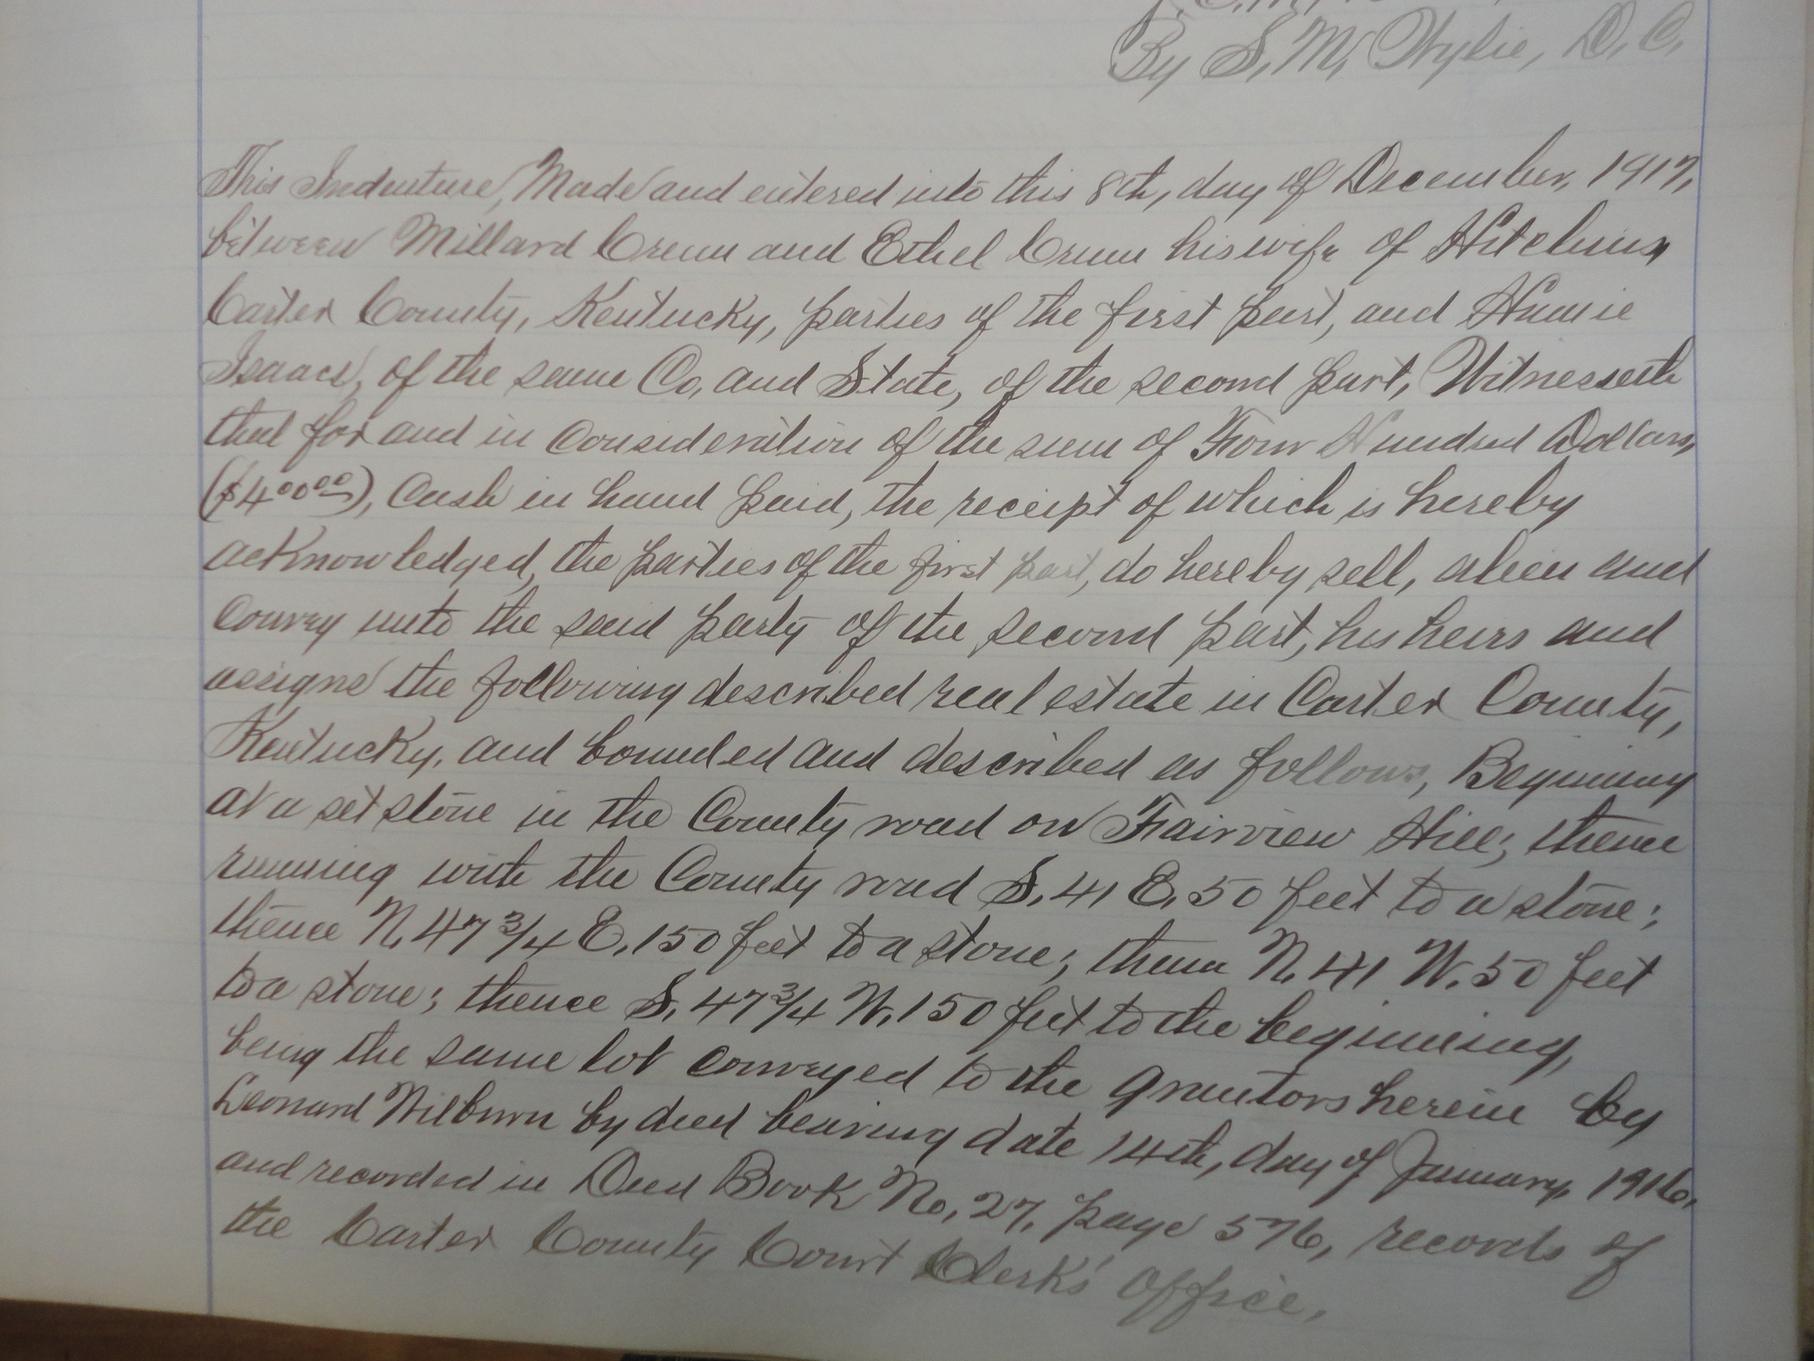 By S. M. Wylie, D. C.
This Indenture, Made and entered into this 8th, day of December, 1917,
between Millard Crum and Ethel Crum his wife of Hitchins,
Carter County, Kentucky, parties of the first part, and
Isaacs, of the same Co, and State, of the second part, Witnesseth
that for and in consideration of the sum of Four Hundred Dollars,
($400.00), Cash in hand paid, the receipt of which is hereby
acknowledged, the parties of the first part, do hereby sell, alien and
convey unto the said party of the second part, his heirs and
assigns the following described real estate in Carter County,
Kentucky, and bounded and described as follows, Beginning
at a set stone in the County road on Fairview Hill; thence
running with the County road S. 41 E. 50 feet to a stone;
thence N. 47 3/4 E. 150 feet to a stone; thence N. 41 W. 50 feet
to a stone; thence S. 47 3/4 W. 150 feet to the beginning,
being the same lot conveyed to the grantors herein by
Leonard Wilburn by deed bearing date 14th, day of January, 1916,
and recorded in Deed Book No, 27, page 576, records of
the Carter County Court Clerk's office,